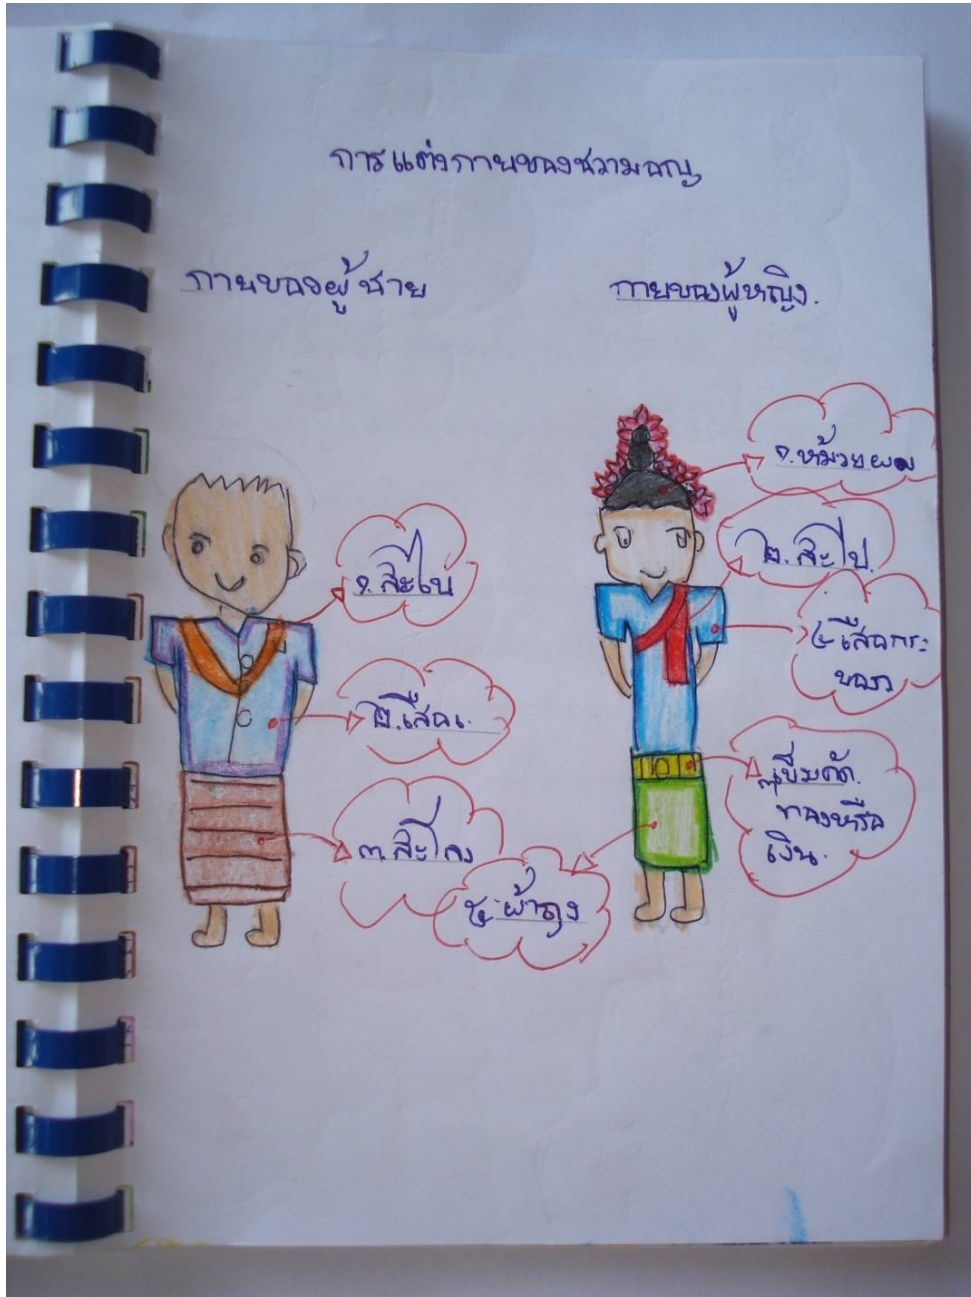 การแต่งกายของชวามอญ
กายของผู้ชาย
กายของผู้หญิง.
๑.สะไบ
๒.
๓.สะโลง
๑.ห้มวยผม
๒.สะไบ.
๔ เสือกระ
บอก
๓เข็มคัด.
ทองหรือ
เงิน.
๕ ผ้าถุง